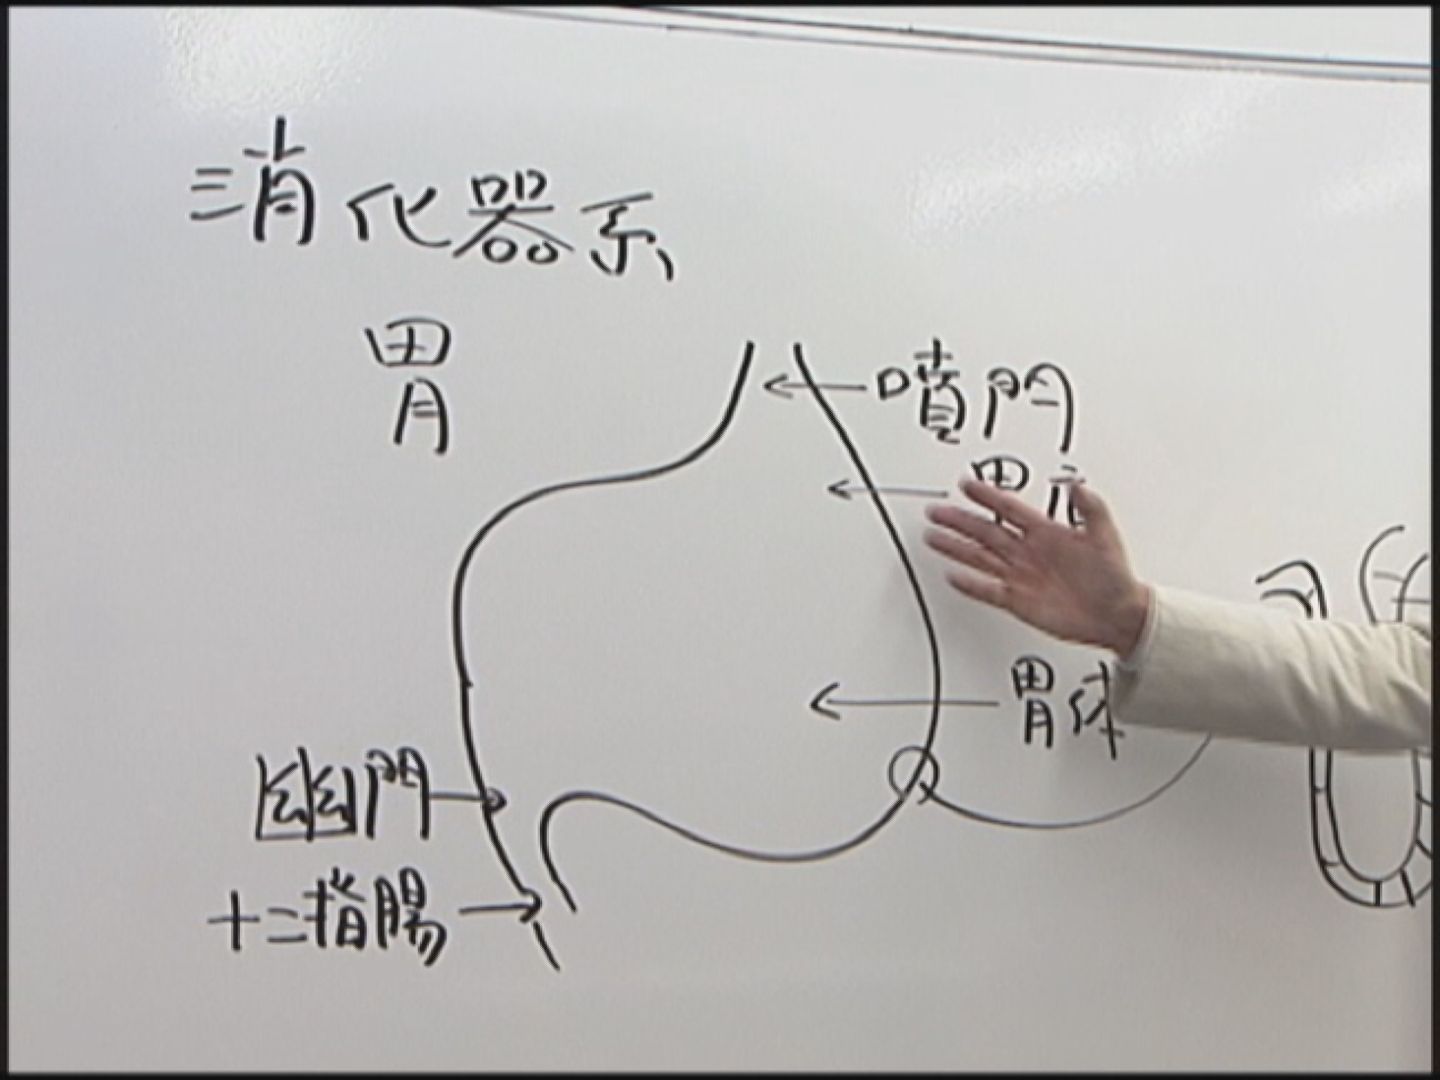 消化器系
胃
噴門
胃
胃体
幽門
十二指腸